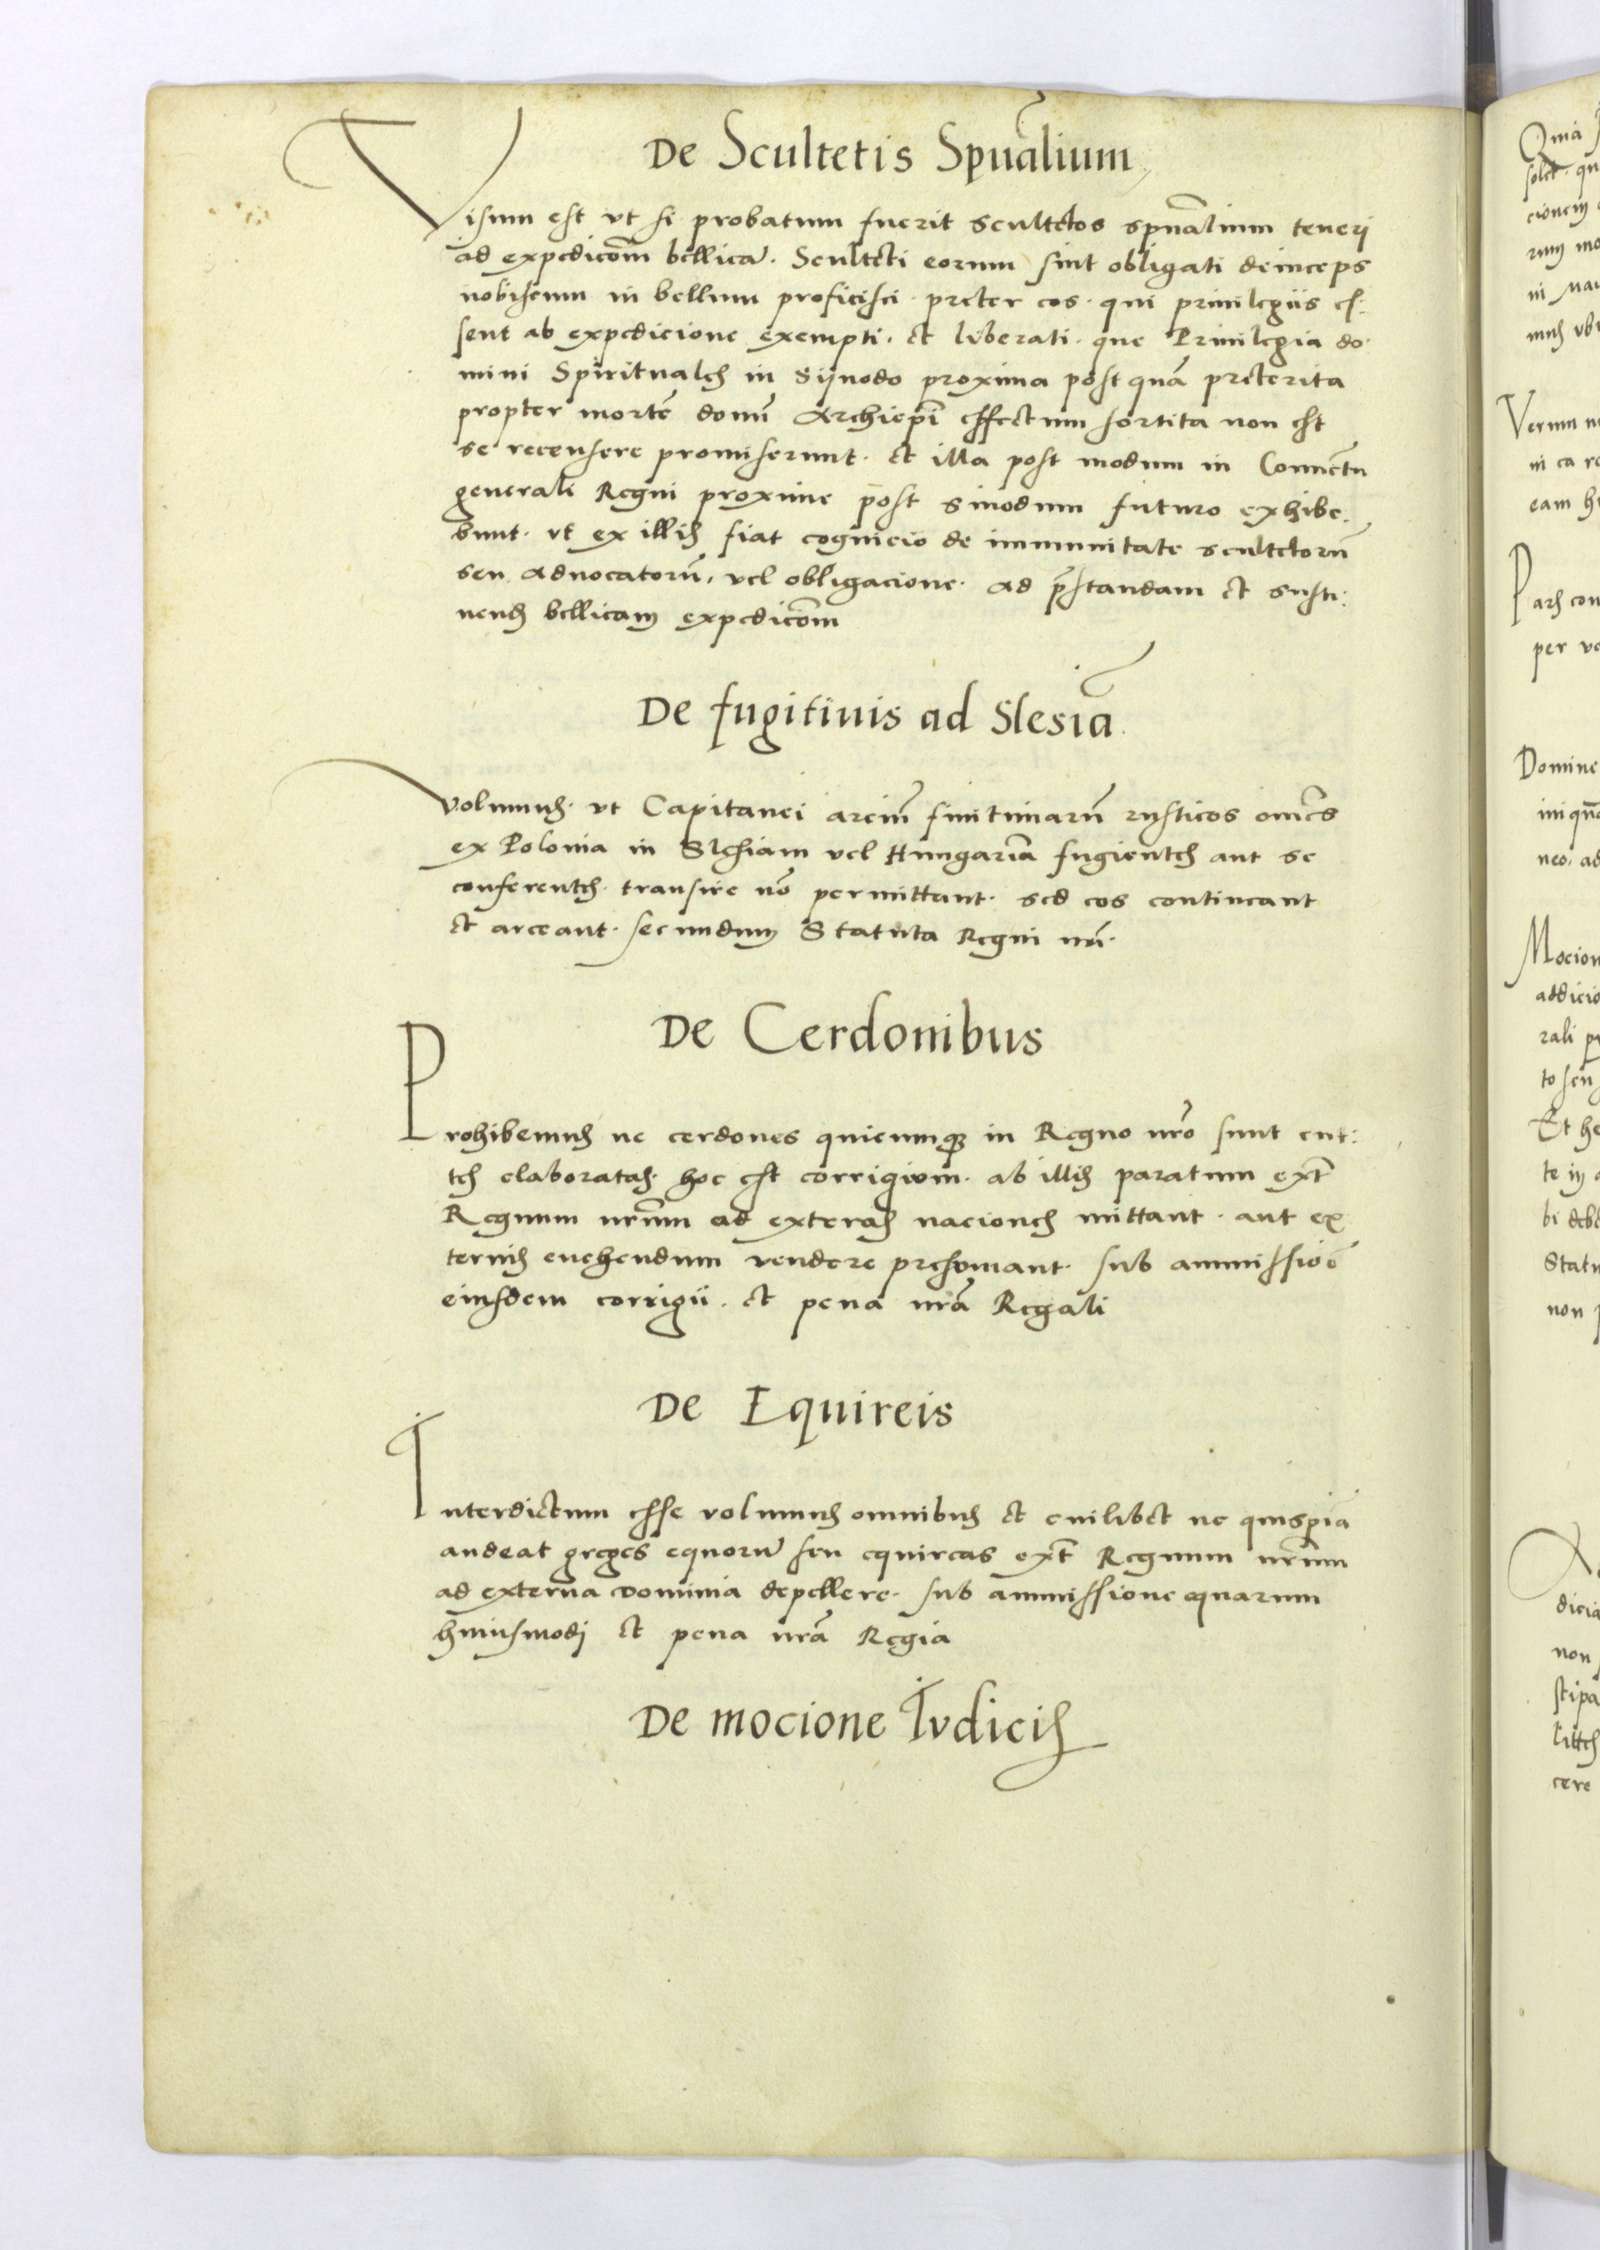 De Scultetis Spũalium
Visum est vt si probatum fuerit scultetos spũalium teneri
ad expedicõm bellicã. Sculteti eorum sint obligati deinceps
nobiscum in bellum proficisci. preter eos. qui priuilegiis es:
sent ab expedicione exempti. et liberati. que Priuilegia do
mini Spirituales in Sÿnodo proxima post quã preterita
propter mortẽ domñ Archiep̃i effectum sortita non est
se recensere promiserunt. et illa post modum in Conuentu
generali Regni proxime post sinodum futuro exhibe.
bunt. vt ex illis fiat cognicio de immunitate scultetorũ
seu aduocatorũ, vel obligacione. ad p̃standam et susti:
nend bellicam expedicõm
De fugitiuis ad Slesiã
volumus. vt Capitanei arciũ finitimarũ rusticos om̃es
ex Polonia in Slesiam vel Hungariã fugientes aut se
conferentes. transire nõ permittant. sed eos contineant
et arceant. secundum Statuta Regni nr̃i.
De Cerdonibus
Prohibemus ne cerdones quicumqꝫ in Regno nr̃o sunt cut:
tes elaboratas. hoc est corrigium. ab illis paratum ext̃
Regnum nr̃um ad exteras naciones mittant. aut ex
ternis euehendum vendere presumant. sub ammissiõe
eiusdem corrigii. et pena nr̃a Regali
De Equireis
Interdictum esse volumus omnibus et cuilibet ne quispiã
audeat greges equorũ seu equireas ext̃ Regnum nr̃um
ad externa dominia depellere. sub ammissione equarum
huiusmodi et pena nr̃a Regia
De mocione Iudicis